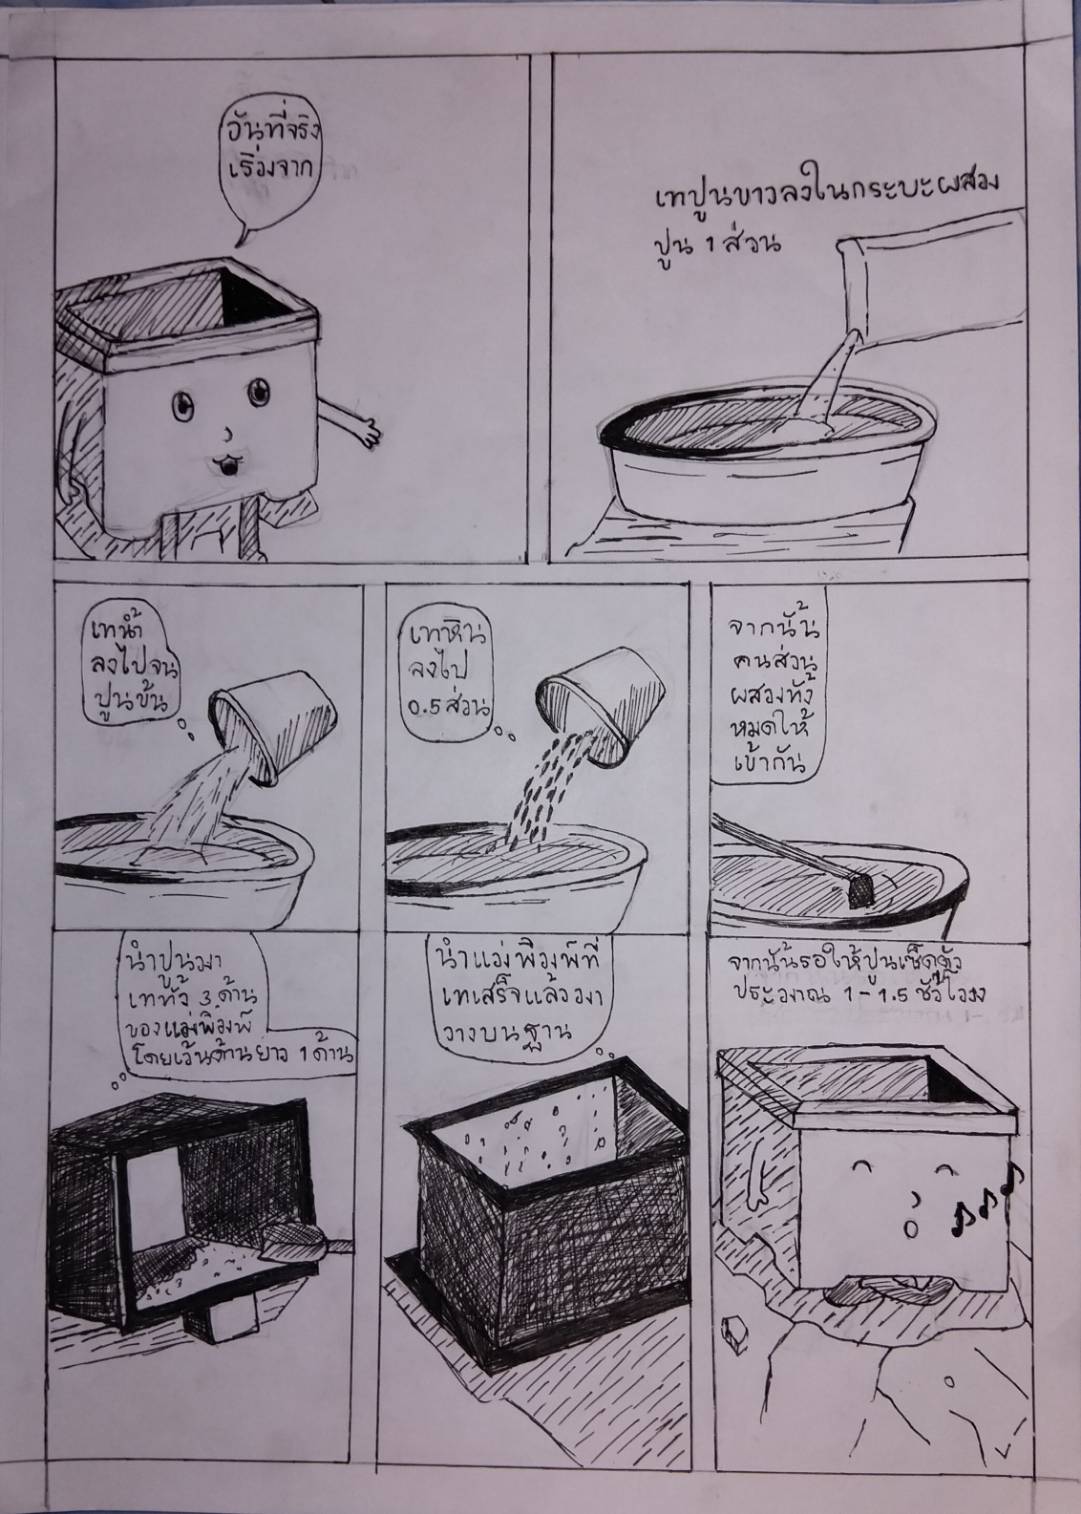 อันที่จริง
เริ่มจาก
เทปูนขาวลงในกระบะผสม
ปูน 1 ส่วน
เทน้ำ
ลงไปจน
ปูนข้น
เทหิน
ลงไป
0.5 ส่วน
จากนั้น
คนส่วน
ผสมทั้ง
หมดให้
เข้ากัน
นำปูนมา
เททั้ง 3 ด้าน
ของแม่พิมพ์
โดยเว้นด้านยาว 1 ด้าน
นำแม่พิมพ์ที่
เทเสร็จแล้วมา
วางบนฐาน
จากนั้นรอให้ปูนเซ็ตตัว
ประมาณ 1 - 1.5 ชั่วโมง